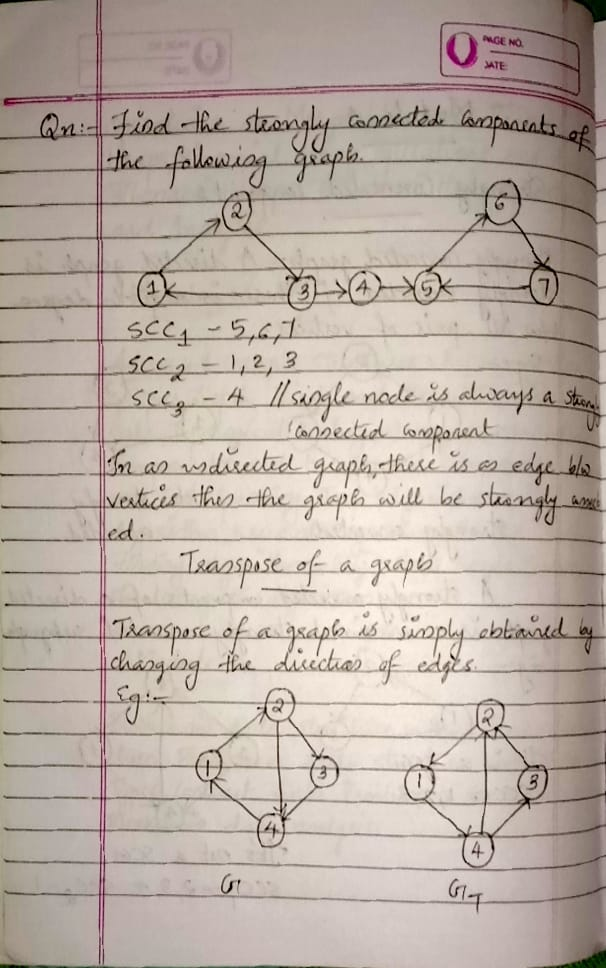 PAGE NO.
DATE:
Qn:- Find the strongly connected components of
the following graph.
2
6
1
3
4
5
7
SCC1 - 5,6,7
SCC2 - 1,2,3
SCC3 - 4 // single node is always a strong
connected component
In an undirected graph, there is an edge b/w
vertices then the graph will be strongly connect
ed.
Transpose of a graph
Transpose of a graph is simply obtained by
changing the direction of edges.
Eg:-
2
1
3
4
G
2
1
3
4
GT